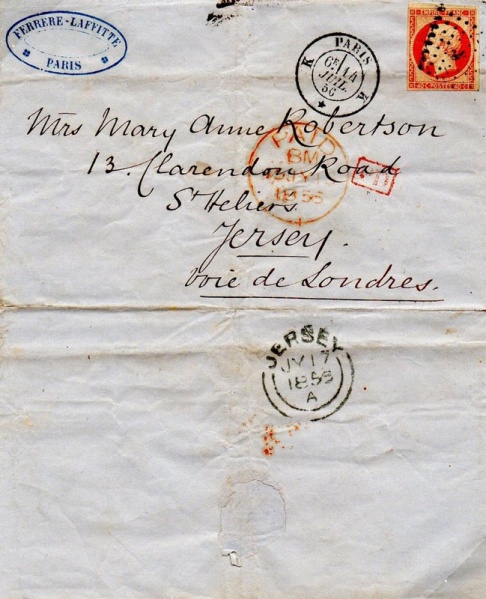 FERRERE-LAFFITTE
PARIS
PARIS
K K
JUIL.
56
EMPIRE FRANC
40 C POSTES 40 C
Mrs Mary Anne Robertson
PAID
13. Clarendon Road
St Heliers
1856
PD
Jersey.
Voie de Londres.
JERSEY
JY 17
1856
A